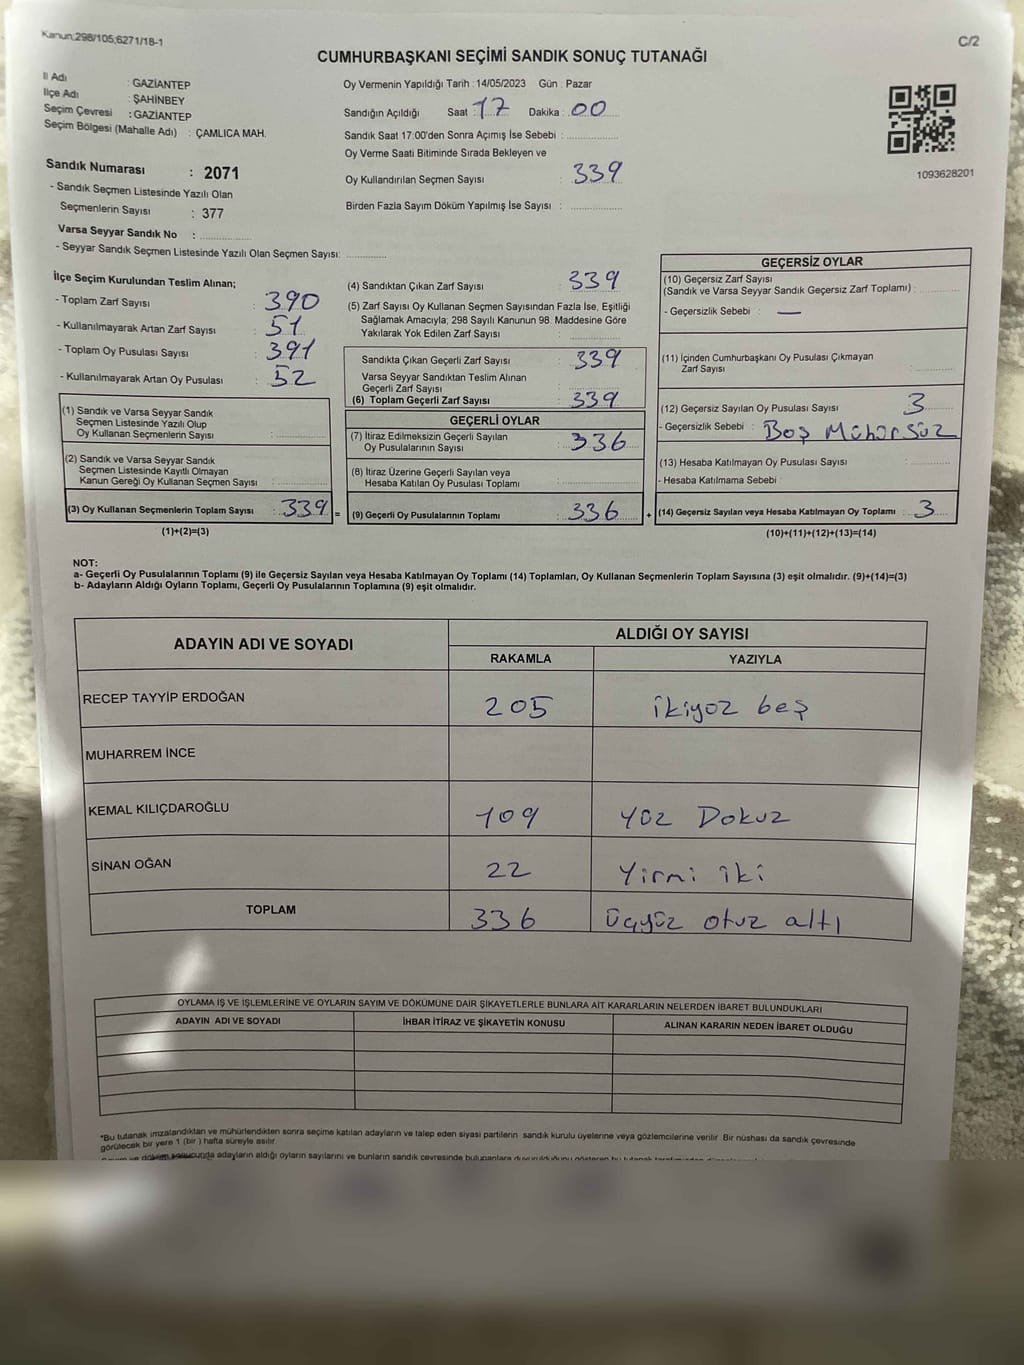 Kanun;298/105;6271/18-1
C/2
CUMHURBAŞKANI SEÇİMİ SANDIK SONUÇ TUTANAĞI
İl Adı : GAZİANTEP
İlçe Adı : ŞAHİNBEY
Seçim Çevresi : GAZİANTEP
Seçim Bölgesi (Mahalle Adı) : ÇAMLICA MAH.
Sandık Numarası : 2071
- Sandık Seçmen Listesinde Yazılı Olan
Seçmenlerin Sayısı : 377
Varsa Seyyar Sandık No :
- Seyyar Sandık Seçmen Listesinde Yazılı Olan Seçmen Sayısı:
Oy Vermenin Yapıldığı Tarih : 14/05/2023 Gün : Pazar
Sandığın Açıldığı Saat : 17 Dakika : 00
Sandık Saat 17:00'den Sonra Açımış İse Sebebi :
Oy Verme Saati Bitiminde Sırada Bekleyen ve
Oy Kullandırılan Seçmen Sayısı : 339
Birden Fazla Sayım Döküm Yapılmış İse Sayısı :
1093628201
İlçe Seçim Kurulundan Teslim Alınan;
- Toplam Zarf Sayısı : 390
- Kullanılmayarak Artan Zarf Sayısı : 51
- Toplam Oy Pusulası Sayısı : 391
- Kullanılmayarak Artan Oy Pusulası : 52
(1) Sandık ve Varsa Seyyar Sandık
Seçmen Listesinde Yazılı Olup
Oy Kullanan Seçmenlerin Sayısı :
(2) Sandık ve Varsa Seyyar Sandık
Seçmen Listesinde Kayıtlı Olmayan
Kanun Gereği Oy Kullanan Seçmen Sayısı :
(3) Oy Kullanan Seçmenlerin Toplam Sayısı : 339 =
(1)+(2)=(3)
(4) Sandıktan Çıkan Zarf Sayısı : 339
(5) Zarf Sayısı Oy Kullanan Seçmen Sayısından Fazla İse, Eşitliği
Sağlamak Amacıyla; 298 Sayılı Kanunun 98. Maddesine Göre
Yakılarak Yok Edilen Zarf Sayısı :
Sandıkta Çıkan Geçerli Zarf Sayısı : 339
Varsa Seyyar Sandıktan Teslim Alınan
Geçerli Zarf Sayısı :
(6) Toplam Geçerli Zarf Sayısı : 339
GEÇERLİ OYLAR
(7) İtiraz Edilmeksizin Geçerli Sayılan
Oy Pusulalarının Sayısı : 336
(8) İtiraz Üzerine Geçerli Sayılan veya
Hesaba Katılan Oy Pusulası Toplamı :
(9) Geçerli Oy Pusulalarının Toplamı : 336 +
GEÇERSİZ OYLAR
(10) Geçersiz Zarf Sayısı
(Sandık ve Varsa Seyyar Sandık Geçersiz Zarf Toplamı) :
- Geçersizlik Sebebi : —
(11) İçinden Cumhurbaşkanı Oy Pusulası Çıkmayan
Zarf Sayısı :
(12) Geçersiz Sayılan Oy Pusulası Sayısı : 3
- Geçersizlik Sebebi : Boş Mühürsüz
(13) Hesaba Katılmayan Oy Pusulası Sayısı :
- Hesaba Katılmama Sebebi :
(14) Geçersiz Sayılan veya Hesaba Katılmayan Oy Toplamı : 3
(10)+(11)+(12)+(13)=(14)
NOT:
a- Geçerli Oy Pusulalarının Toplamı (9) ile Geçersiz Sayılan veya Hesaba Katılmayan Oy Toplamı (14) Toplamları, Oy Kullanan Seçmenlerin Toplam Sayısına (3) eşit olmalıdır. (9)+(14)=(3)
b- Adayların Aldığı Oyların Toplamı, Geçerli Oy Pusulalarının Toplamına (9) eşit olmalıdır.
ADAYIN ADI VE SOYADI
ALDIĞI OY SAYISI
RAKAMLA YAZIYLA
RECEP TAYYİP ERDOĞAN 205 ikiyüz beş
MUHARREM İNCE
KEMAL KILIÇDAROĞLU 109 Yüz Dokuz
SİNAN OĞAN 22 Yirmi iki
TOPLAM 336 üçyüz otuz altı
OYLAMA İŞ VE İŞLEMLERİNE VE OYLARIN SAYIM VE DÖKÜMÜNE DAİR ŞİKAYETLERLE BUNLARA AİT KARARLARIN NELERDEN İBARET BULUNDUKLARI
ADAYIN ADI VE SOYADI İHBAR İTİRAZ VE ŞİKAYETİN KONUSU ALINAN KARARIN NEDEN İBARET OLDUĞU
*Bu tutanak imzalandıktan ve mühürlendikten sonra seçime katılan adayların ve talep eden siyasi partilerin sandık kurulu üyelerine veya gözlemcilerine verilir. Bir nüshası da sandık çevresinde
görülecek bir yere 1 (bir ) hafta süreyle asılır.
adayların aldığı oyların sayılarını ve bunların sandık çevresinde